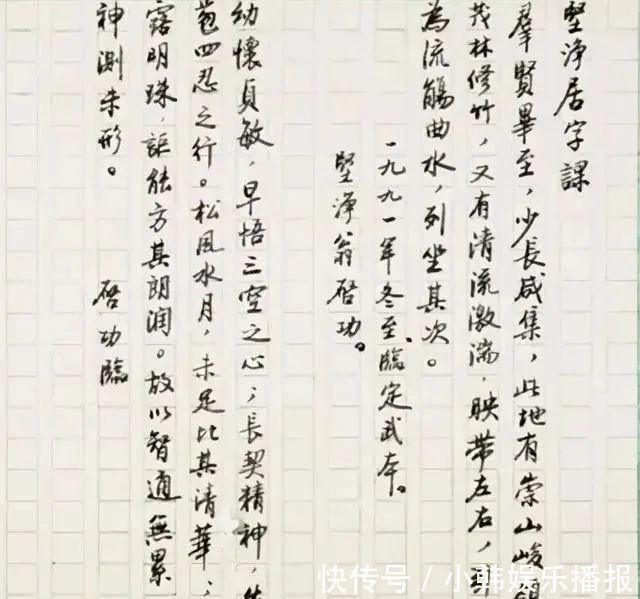 堅淨居字課
羣賢畢至,少長咸集,此地有崇山峻
茂林修竹,又有清流激湍,映帶左右,
為流觴曲水,列坐其次。
一九九一年冬至、臨定武本。
堅淨翁啓功。
幼懷貞敏,早悟三空之心;長契精神,
苞四忍之行。松風水月,未足比其清華;
露明珠,詎能方其朗潤。故以智通無累
神測未形。 啓功臨
快传号 / 小韩娱乐播报